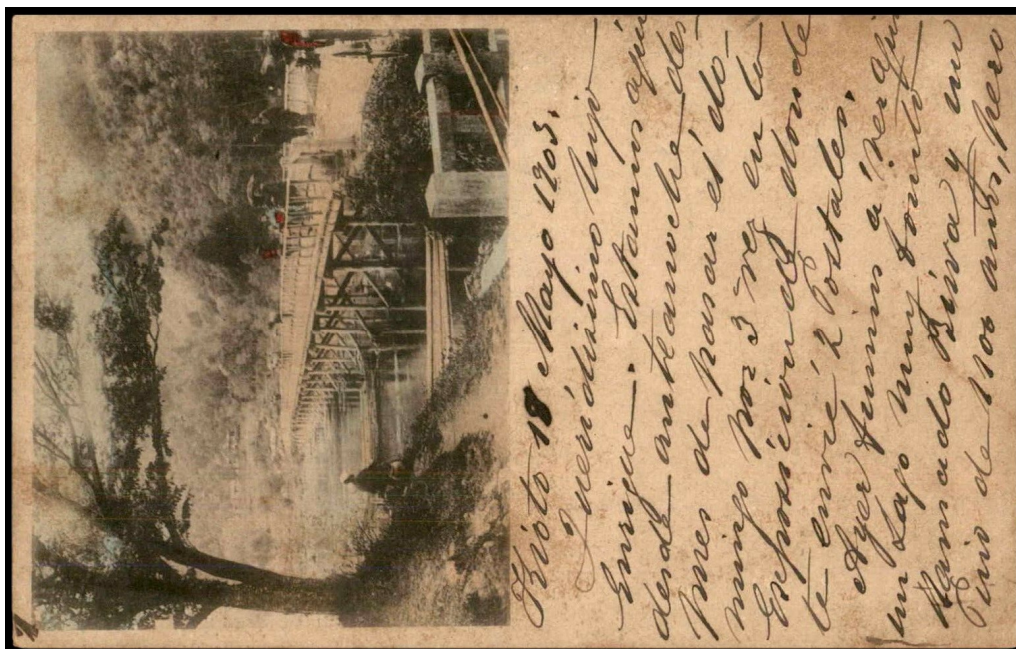 Kioto 18 Mayo 1903.
Queridisimo hijo
Enrique. Estamos aqui
desde anteanoche des-
pues de pasar el do-
mingo por 3ª vez en la
Exposición de donde
te envié 2 Postales.
Ayer fuimos á ver aquí
un Lago muy bonito
llamado Biwa y un
Pino de 100 años, pero